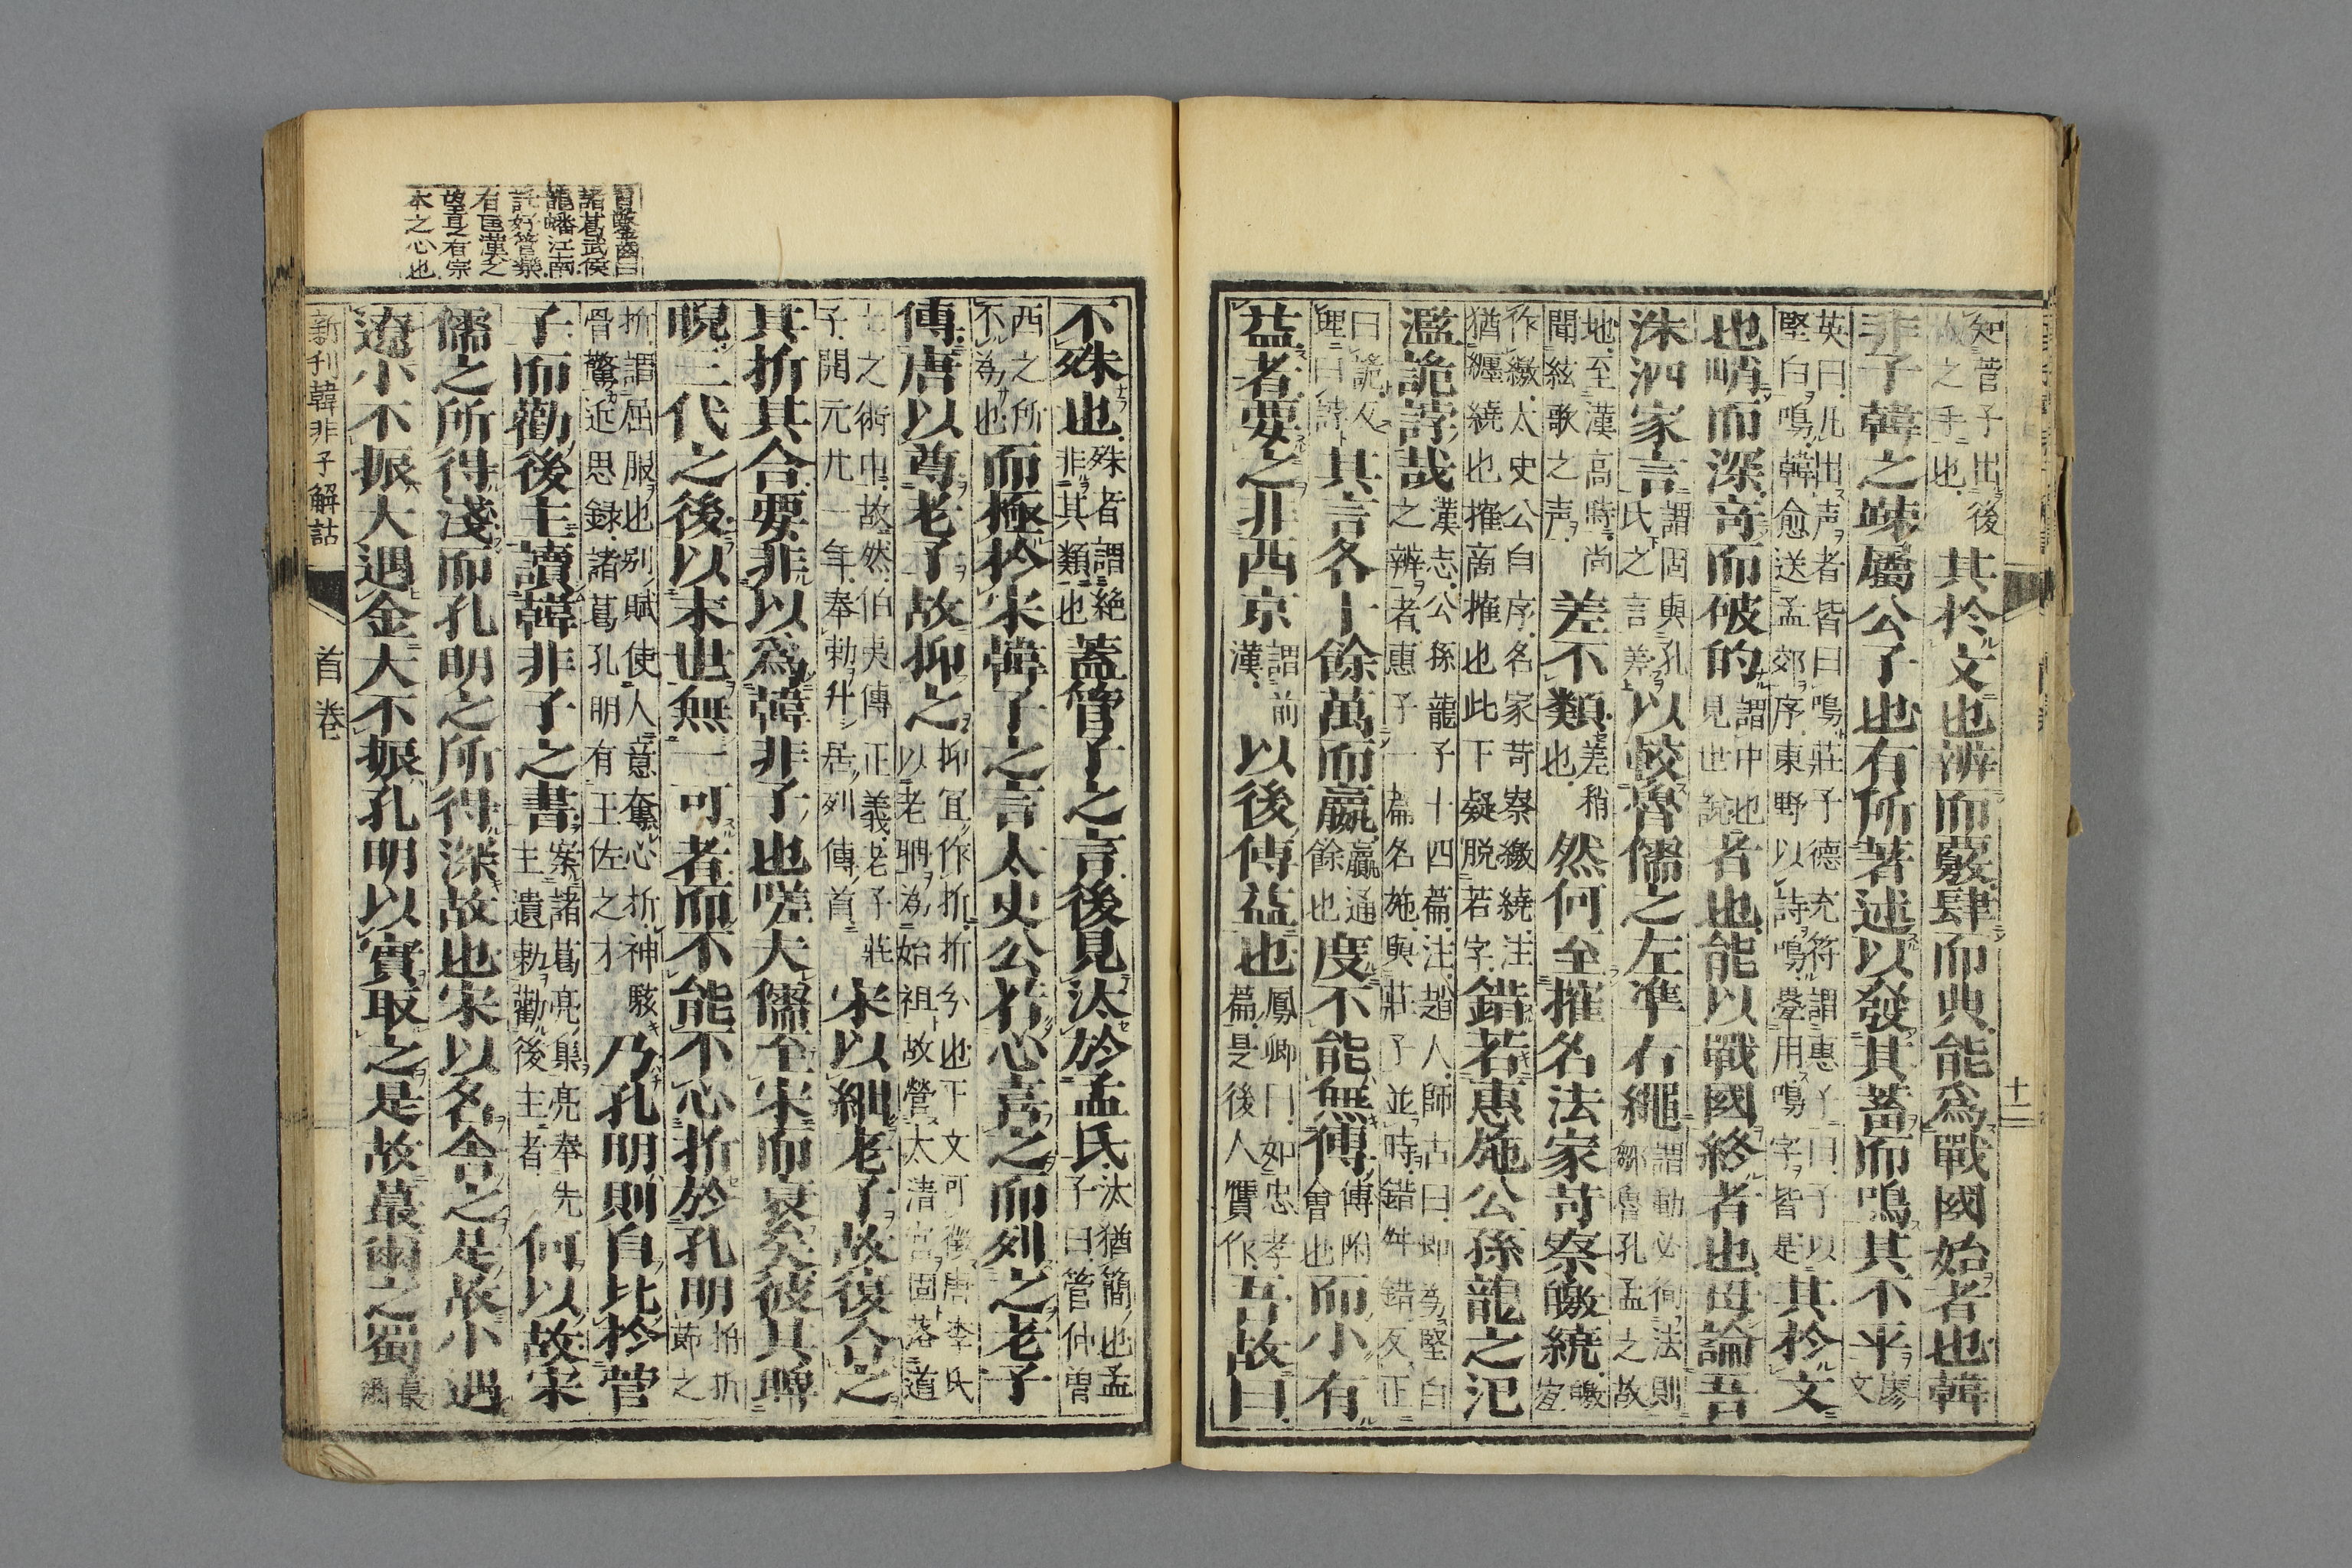 知管子出後
故之手也
其於文也辨而覈肆而典能爲戰國始者也韓
非子韓之疎屬公子也有所著述以發其蓄而鳴其不平
廖
文
英曰凡出声者皆曰鳴莊子德充符謂惠子曰子以
堅白鳴韓愈送孟郊序東野以詩鳴疊用鳴字皆是
其於文
也峭而深奇而破的
謂中也
見世說
者也能以戰國終者也毋論吾
洙泗家言
謂固與孔
氏之言差
以較魯儒之左準右繩
謂動必徇法則
鄒魯孔孟之故
地至漢高時尚
聞絃歌之声
差不類
差稍
也
然何至摧名法家苛察繳繞
繳
岌
作繳太史公自序名家苛察繳繞注
猶纏繞也摧啇摧也此下疑脱若字
錯若惠施公孫龍之氾
濫詭誖哉
漢志公孫龍子十四篇注趙人師古曰即爲堅白
之辨者惠子一篇名施與莊子並時錯舛錯反正
曰詭反
俚曰誖
其言各十餘萬而嬴
嬴通
餘也
度不能無傅
傅附
會也
而小有
益者要之非西京
謂前
漢
以後傅益也
鳳卿曰如忠孝
篇是後人贋作
吾故曰
十二
不殊也
殊者謂絶
非其類也
蓋管子之言後見汰於孟氏
汰猶簡也孟
子曰管仲曽
西之所
不爲也
而極於宋韓子之言太史公若心喜之而列之老子
傳唐以尊老子故抑之
抑冝作折折分也下文可徵唐李氏
以老聃爲始祖故營太清宮固落道
士之術中故然伯夷傳正義老子莊
子開元廿一年奉勅升居列傳首
宋以絀老子故復合之
其折其合要非以爲韓非子也嗟夫儒至宋而衰矣彼其睥
睨三代之後以末世無一可者而不能不心折於孔明
拍折
莭之
折謂屈服也别賦使人意奪心折神駭
骨驚近思録諸葛孔明有王佐之才
乃孔明則自比於管
子而勸後主讀韓非子之書
案諸葛亮集亮奉先
主遺勅勸後主者
何以故宋
儒之所得淺而孔明之所得深故也宋以名舍之是故小遇
遼小不振大遇金大不振孔明以實取之是故蕞爾之蜀
諸葛武侯
龍蟠江南
託好管樂
有匡漢之
望是有宗
本之心也
新刊韓非子解詁
首卷